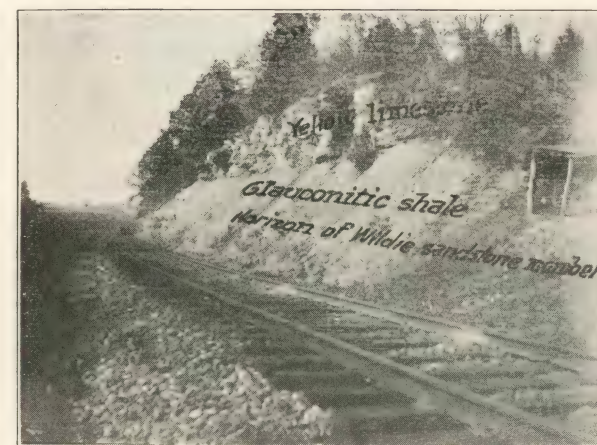 Yellow limestone
Glauconitic shale
Horizon of Wildie sandstone member